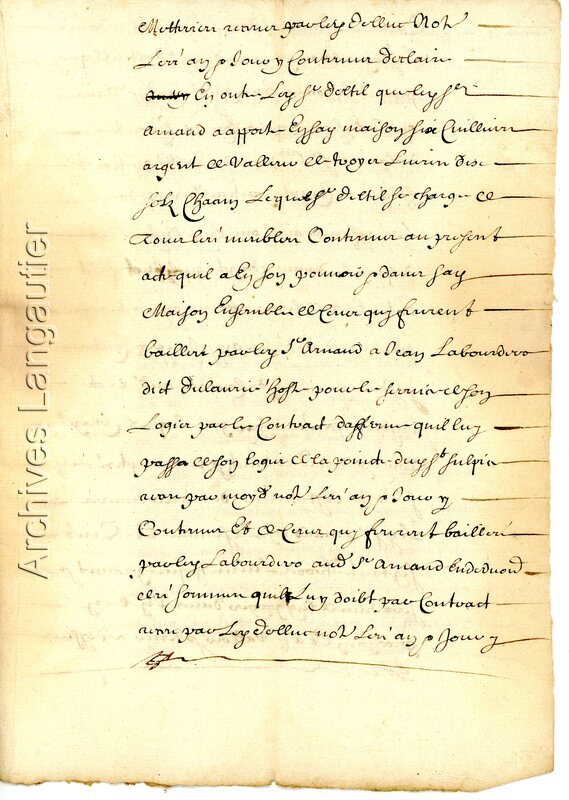 Mettrier receu par led delluc Not
Les an & Jour y Contenus declair
En outre Led Sr deltil que led Sr
Arnaud a apporte En sa maison six Cuillieres
argent de Valleur de troyes Livres dix
solz Chacun Lequel Sr deltil se charge de
Tous les meubles Contenus au present
acte quil a En son pouvoir & dans sa
Maison Ensemble de Ceux quy feurent
bailles par led Sr Arnaud a Jean Labourdero
dict dulaurie hoste pour le service de son
Logis par le Contract dafferme quil luy
passa de son logis de la pointe du St sulpice
receu par moyd not Les an & Jour y
Contenus Et de Ceux quy feurent bailles
par led Labourdero aud Sr Arnaud En
des sommes quil Luy doibt par Contract
receu par Led delluc not Les an & Jour y
Archives Langautier